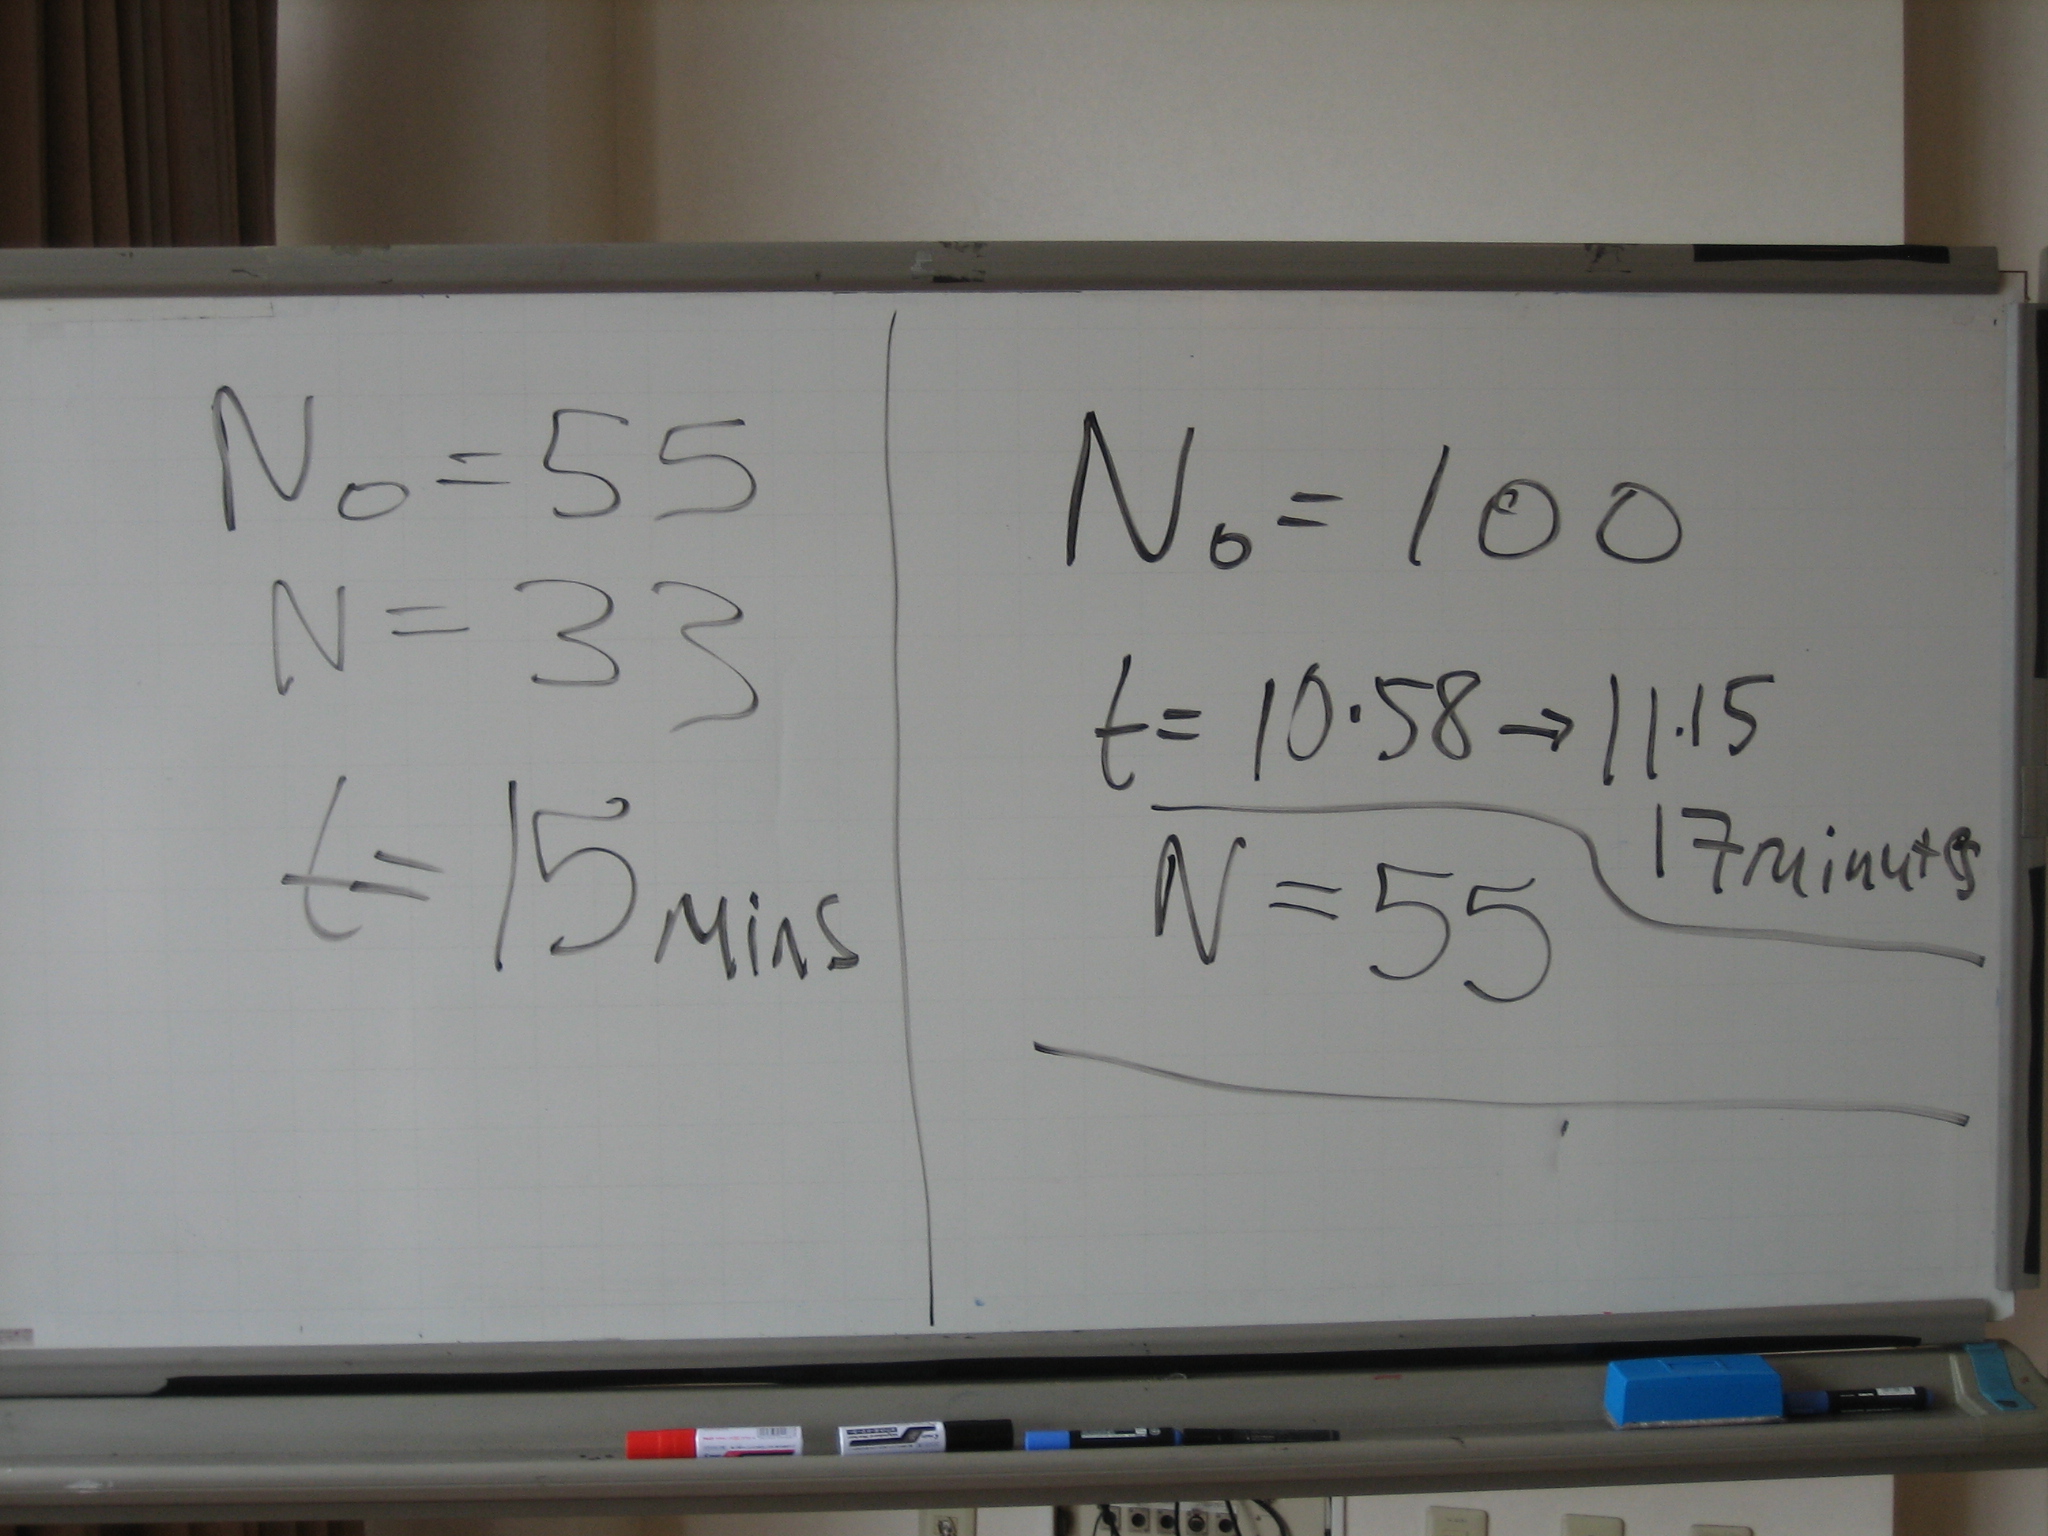 N₀ = 55
N = 33
t = 15 mins
N₀ = 100
t = 10.58 → 11.15
17 minutes
N = 55